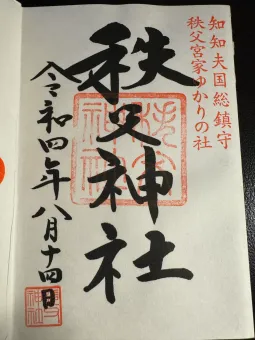 知知夫国総鎮守
秩父宮家ゆかりの社
秩父神社
令和四年八月十四日